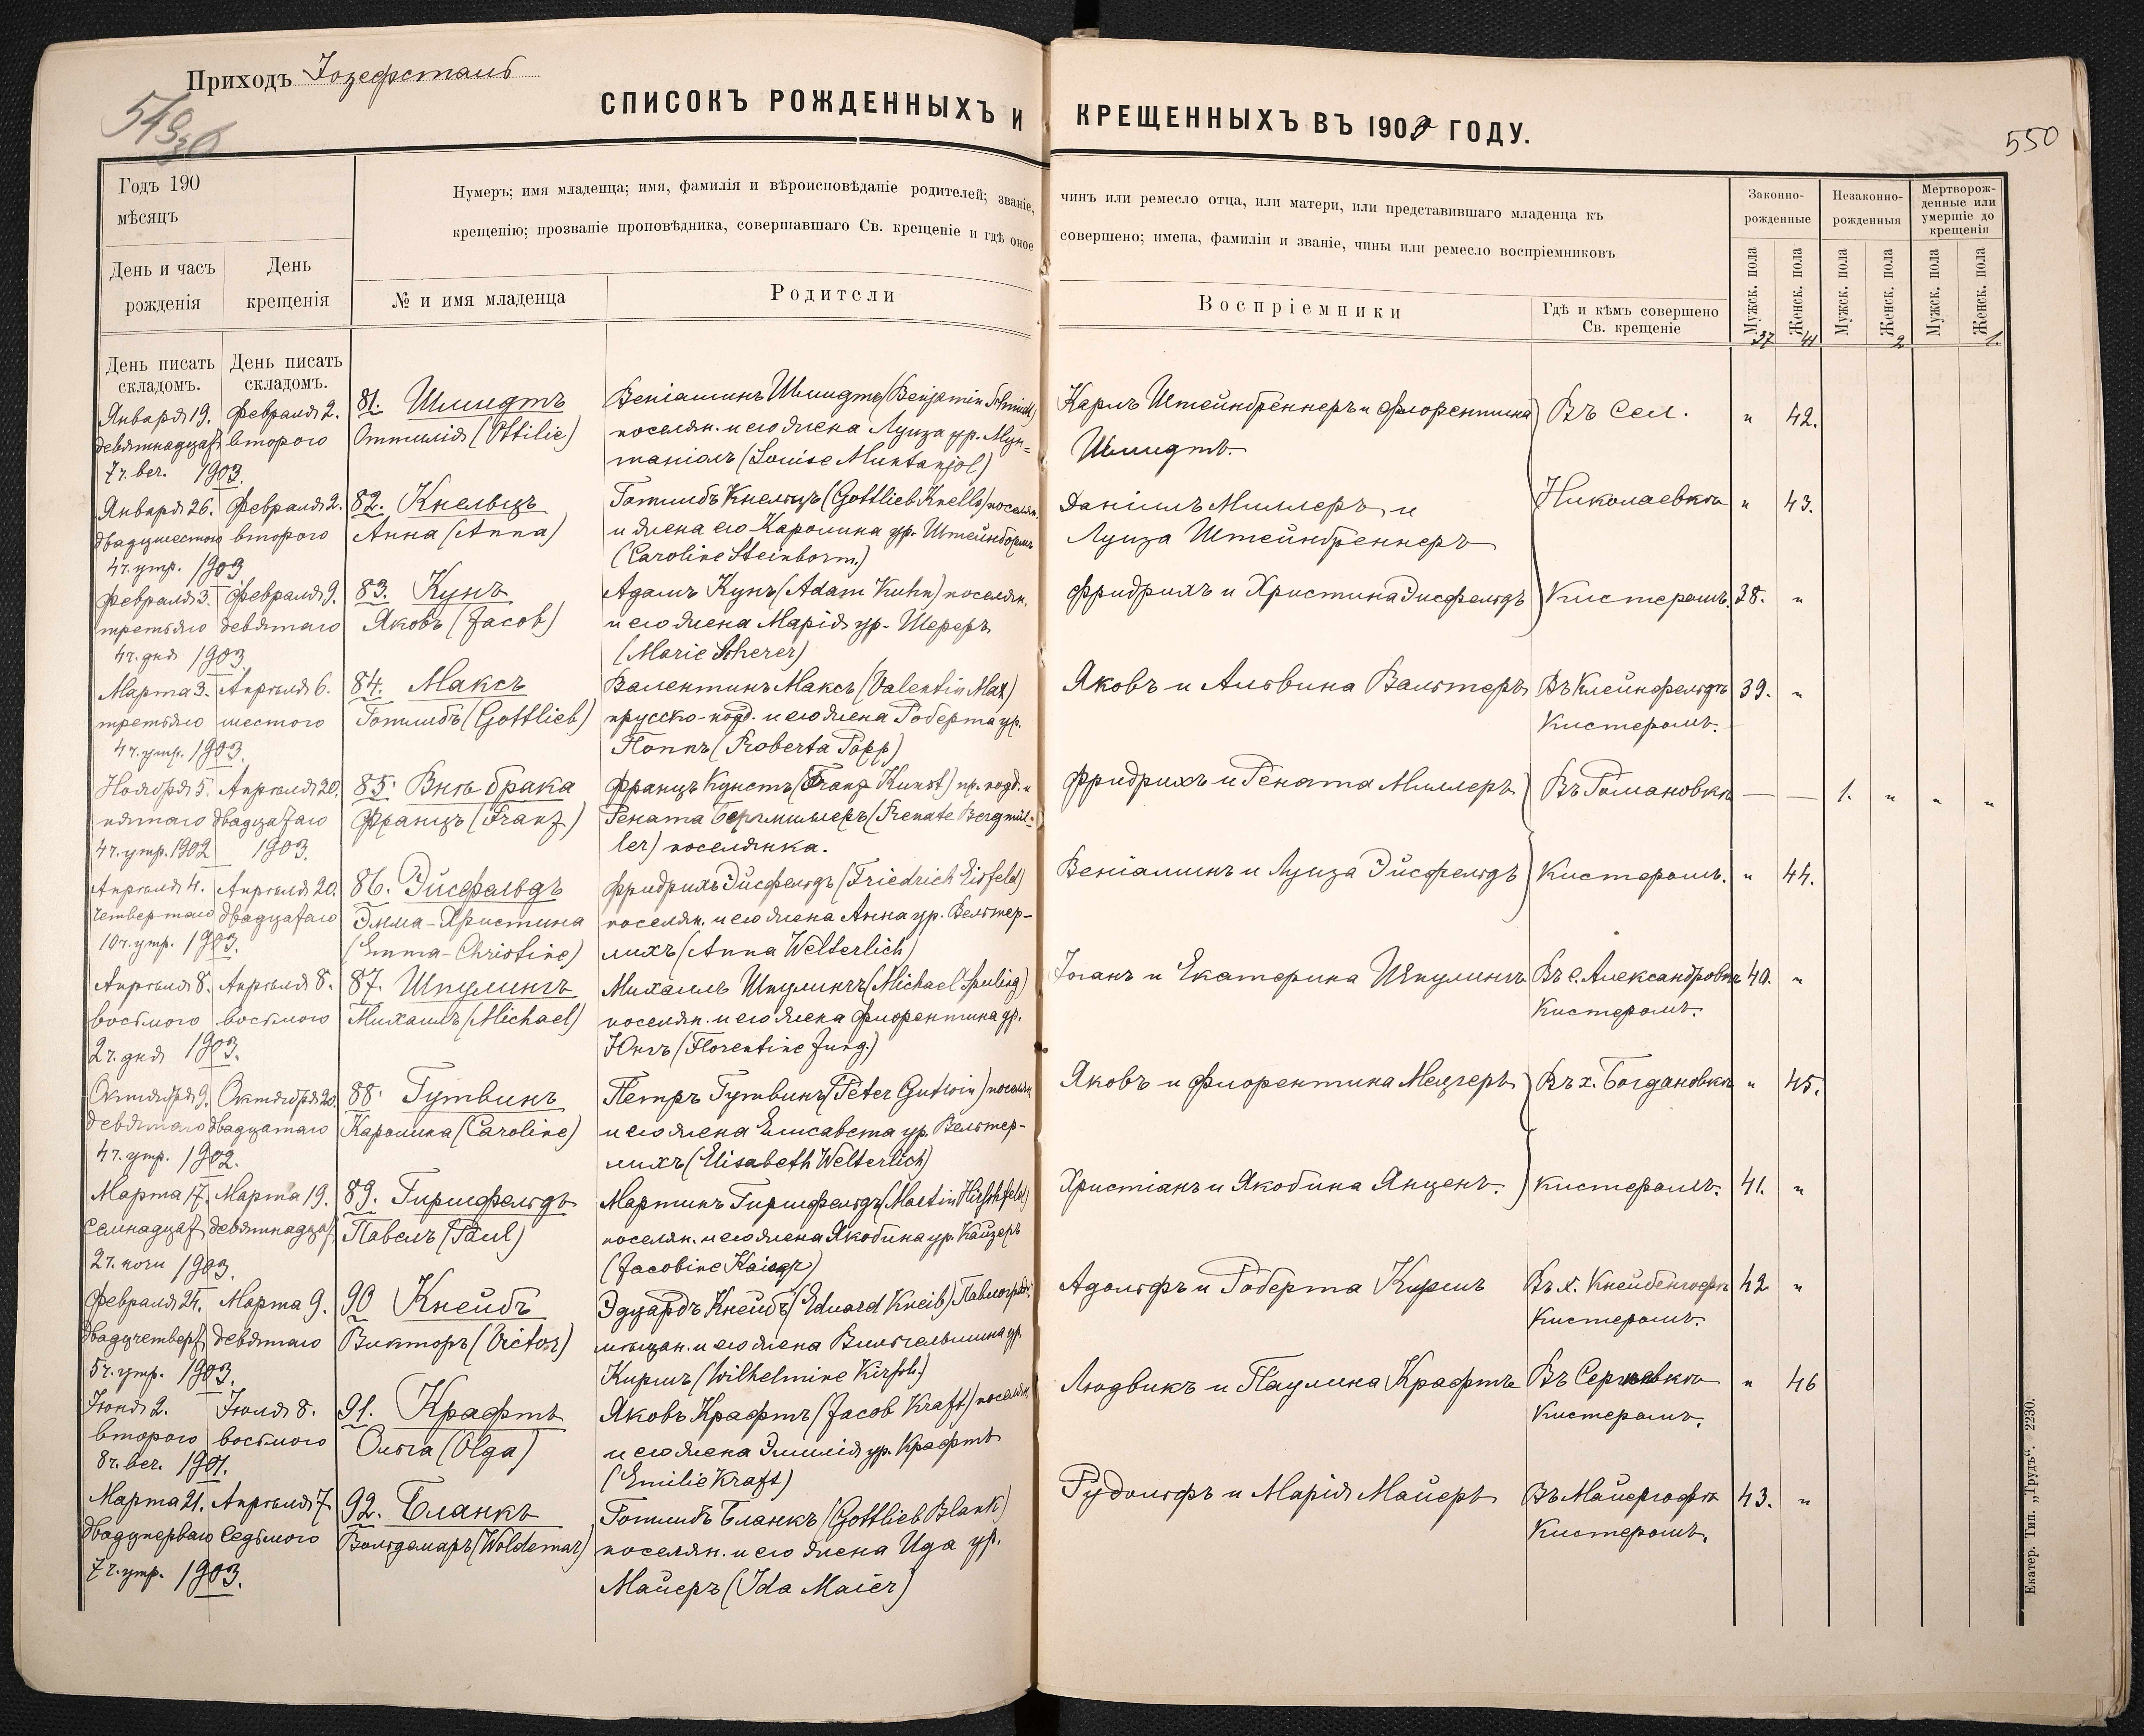 Приходъ Іозефсталь
549
36
СПИСОКЪ РОЖДЕННЫХЪ И КРЕЩЕННЫХЪ ВЪ 1903 ГОДУ.
550
Годъ 190
мѣсяцъ
День и часъ рожденія
День крещенія
Нумеръ; имя младенца; имя, фамилія и вѣроисповѣданіе родителей; званіе, чинъ или ремесло отца, или матери, или представившаго младенца къ
крещенію; прозваніе проповѣдника, совершавшаго Св. крещеніе и гдѣ оное совершено; имена, фамиліи и званіе, чины или ремесло воспріемниковъ
№ и имя младенца
Родители
Воспріемники
Гдѣ и кѣмъ совершено
Св. крещеніе
Законно-
рожденные
Незаконно-
рожденныя
Мертворож-
денные или
умершіе до
крещенія
Мужск. пола
Женск. пола
Мужск. пола
Женск. пола
Мужск. пола
Женск. пола
37 41 2 1.
День писать
складомъ.
День писать
складомъ.
Января 19.
девятнадцат
7 ч. веч.
Февраля 2.
второго
1903.
81. Шмидтъ
Оттилія (Ottilie)
Веніаминъ Шмидтъ (Benjamin Schmidt)
поселян. и его жена Луиза ур. Мун=
таніолъ (Louise Muntanjol)
Карлъ Штейнбреннеръ и Флорентина
Шмидтъ.
Въ Сел.
" 42.
Января 26.
двадцшестого
4 ч. утр.
Февраля 2.
второго
1903
82. Кнельцъ
Анна (Anna)
Готлибъ Кнельцъ (Gottlieb Knells) поселян.
и жена его Каролина ур. Штейнборнъ
(Caroline Steinborn)
Даніилъ Миллеръ и
Луиза Штейнбреннеръ
Николаевкѣ
" 43.
Февраля 3.
третьяго
4 ч. дня
Февраля 9.
девятаго
1903
83. Кунъ
Яковъ (Jacob)
Адамъ Кунъ (Adam Kuhn) поселян.
и его жена Марія ур. Шереръ
(Marie Scherer)
Фридрихъ и Христина Эисфельдъ
Кистеромъ.
38. "
Марта 3.
третьяго
4 ч. утр.
Апрѣля 6.
шестого
1903.
84. Максъ
Готлибъ (Gottlieb)
Валентинъ Максъ (Valentin Max)
прусско-подд. и его жена Роберта ур.
Поппъ (Roberta Popp)
Яковъ и Альвина Вальтеръ
Въ Клейнфельдѣ
Кистеромъ.
39. "
Ноября 5.
пятаго
4 ч. утр. 1902
Апрѣля 20.
двадцатаго
1903.
85. Внѣ брака
Францъ (Franz)
Францъ Кунстъ (Franz Kunst) пр. подд. и
Рената Бергмиллеръ (Renate Bergmül-
ler) поселянка.
Фридрихъ и Рената Миллеръ
Въ Романовкѣ
— — 1. " " "
Апрѣля 4.
четвертаго
10 ч. утр.
Апрѣля 20.
двадцатаго
1903.
86. Эйсфельдъ
Эмма-Христина
(Emma-Christine)
Фридрихъ Эйсфельдъ (Friedrich Eisfeld)
поселян. и его жена Анна ур. Вельтер-
лихъ (Anna Welterlich)
Веніаминъ и Луиза Эйсфельдъ
Кистеромъ.
" 44.
Апрѣля 8.
восьмого
2 ч. дня
Апрѣля 8.
восьмого
1903.
87. Шпулингъ
Михаилъ (Michael)
Михаилъ Шпулингъ (Michael Spuling)
поселян. и его жена Флорентина ур.
Юнгъ (Florentine Jung.)
Іоганъ и Екатерина Шпулингъ
Въ с. Александровкѣ
Кистеромъ.
40. "
Октября 9.
девятаго
4 ч. утр.
Октября 20.
двадцатаго
1902.
88. Гутвинъ
Каролина (Caroline)
Петръ Гутвинъ (Peter Gutwin) поселян
и его жена Елисавета ур. Вельтер-
лихъ (Elisabeth Welterlich)
Яковъ и Флорентина Мецгеръ
Въ х. Богдановкѣ
" 45.
Марта 17.
семнадцат
2 ч. ночи
Марта 19.
девятнадцат
1903.
89. Гиршфельдъ
Павелъ (Paul)
Мартинъ Гиршфельдъ (Martin Hirschfeld)
поселян. и его жена Якобина ур. Кайзеръ
(Jacobine Kaiser)
Христіанъ и Якобина Янценъ.
кистеромъ.
41. "
Февраля 24.
двадцчетверт
5 ч. утр.
Марта 9.
девятаго
1903.
90 Кнейбъ
Викторъ (Victor)
Эдуардъ Кнейбъ (Eduard Kneib) Павлоград.
мѣщан. и его жена Вильгельмина ур.
Киршъ (Wilhelmine Kirsch.)
Адольфъ и Роберта Киршъ
Въ х. Кнейбенгофѣ
Кистеромъ.
42 "
Іюня 2.
второго
8 ч. веч.
Іюля 8.
восьмого
1901.
91. Крафтъ
Ольга (Olga)
Яковъ Крафтъ (Jacob Kraft) поселян.
и его жена Эмилія ур. Крафтъ
(Emilie Kraft)
Людвикъ и Паулина Крафтъ
Въ Сергѣевкѣ
Кистеромъ.
" 46
Марта 21.
двадцперваго
7 ч. утр.
Апрѣля 7.
седьмого
1903.
92. Бланкъ
Вольдемаръ (Woldemar)
Готлибъ Бланкъ (Gottlieb Blank)
поселян. и его жена Ида ур.
Майеръ (Ida Maier)
Рудольфъ и Марія Майеръ
Въ Майергофѣ
Кистеромъ.
43. "
Екатер. Тип. „Трудъ“. 2230.